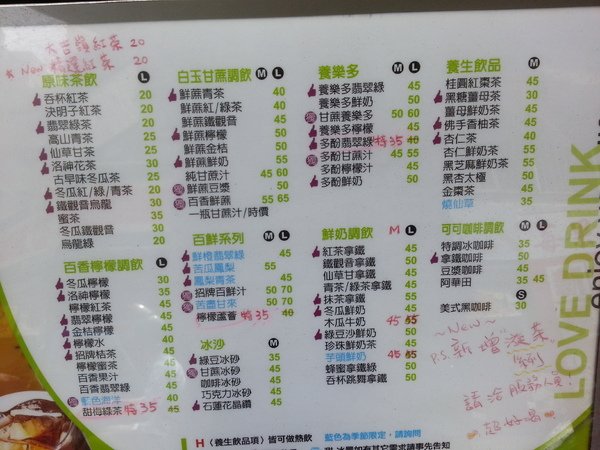 大吉嶺紅茶 20
* New 精選紅茶 20
原味茶飲 L
吞杯紅茶 20
決明子紅茶 20
翡翠綠茶 20
高山青茶 25
仙草甘茶 25
洛神花茶 30
古早味冬瓜茶 25
冬瓜紅/綠/青茶 20
鐵觀音烏龍 30
蜜茶 35
冬瓜鐵觀音 30
烏龍綠 20
百香檸檬調飲 L
冬瓜檸檬 30
洛神檸檬 35
檸檬紅茶
翡翠檸檬
金桔檸檬
檸檬水 40
招牌桔茶
檸檬蜜茶
百香果汁
百香翡翠綠
藍色海洋
甜梅綠茶 特35
白玉甘蔗調飲 M L
鮮蔗青茶 40
鮮蔗紅/綠茶
鮮蔗鐵觀音
鮮蔗檸檬 50
鮮蔗金桔 50
鮮蔗鮮奶 55
純甘蔗汁 45 60
鮮蔗豆漿 50
百香鮮蔗 55 65
一瓶甘蔗汁/時價
百鮮系列 M L
鮮橙翡翠綠
苦瓜鳳梨 55
鳳梨青茶
招牌百鮮汁 50 70
苦盡甘來 50 70
檸檬蘆薈 特35 40
冰沙 L
綠豆冰砂 35
甘蔗冰砂
咖啡冰砂
巧克力冰砂
石蓮花晶鑽
養樂多 M L
養樂多翡翠綠 45
養樂多鮮奶 50
甘蔗養樂多 50 60
養樂多檸檬 45
多酚翡翠綠 特35 40
多酚甘蔗汁 45 55
多酚檸檬汁
多酚鮮奶 50
鮮奶調飲 M L
紅茶拿鐵 45
鐵觀音拿鐵
仙草甘拿鐵
青茶/綠茶拿鐵 45
抹茶拿鐵 55
冬瓜鮮奶
木瓜牛奶 45 65
綠豆沙鮮奶
珍珠鮮奶茶
芋頭鮮奶 45 65
蜂蜜拿鐵
吞杯跳舞拿鐵
養生飲品 M L
桂圓紅棗茶 45
黑糖薑母茶 30
薑母鮮奶茶
佛手香柚茶
杏仁茶 45
杏仁鮮奶茶 55
黑芝麻鮮奶茶 55
黑杏太極 50
金棗茶 45
燒仙草 35
可可咖啡調飲 M L
特調冰咖啡 35
拿鐵咖啡 50
豆漿咖啡 45
阿華田 35 45
S
美式黑咖啡 30
~New~
P.S. 新增
請洽服務人員!
超好喝
LOVE DRINK
H (養生飲品項) 皆可做熱飲
藍色為季節限定,請詢問